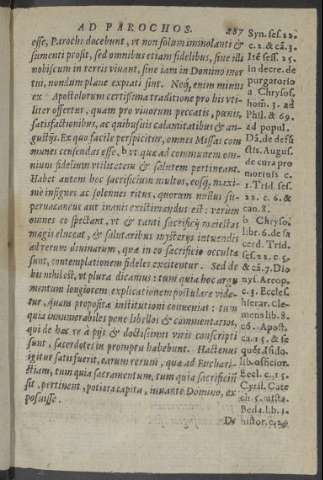 AD PAROCHOS. 287
esse, Parochi docebunt, vt non solum immolanti &
sumenti prosit, sed omnibus etiam fidelibus, siue illi
nobiscum in terris viuant, siue iam in Domino mor
tui, nondum plane expiati sint. Neq, enim minus
ex Apostolorum certissima traditione pro his vti-
liter offertur, quam pro viuorum peccatis, pœnis,
satisfactionibus, ac quibusuis calamitatibus & an-
gustijs. Ex quo facile perspicitur, omnes Missas com
munes censendas esse, vt quæ ad communem om-
nium fidelium vtilitatem & salutem pertineant.
Habet autem hoc sacrificium multos, eosq, maxi-
mè insignes ac solennes ritus, quorum nullus su-
peruacaneus aut inanis existimandus est: verum
omnes eo spectant, vt & tanti sacrificij maiestas
magis eluceat, & salutaribus mysterijs intuendis
ad rerum diuinarum, quæ in eo sacrificio occultæ
sunt, contemplationem fideles excitentur. Sed de
his nihil est, vt plura dicamus: tum quia hoc argu
mentum longiorem explicationem postulare vide-
tur, quam proposita institutioni conueniat: tum
quia innumerabiles pene libellos & commentarios,
qui de hac re à pijs & doctissimis viris conscripti
sunt, sacerdotes in promptu habebunt. Hactenus
igitur satis fuerit, earum rerum, quæ ad Euchari-
stiam, tum quia sacramentum, tum quia sacrificium
sit, pertinent, potiora capita, iuuante Domino, ex
posuisse.
De
Syn. ses. 22.
c. 2. & cā. 3.
Itē ses. 25.
in decre. de
purgatorio
a Chrysos.
hom. 3. ad
Phil. & 69.
ad popul.
sctis. August.
de cura pro
mortuis c.
1. Trid. ses.
22. c. 6. &
can. 8.
b Chrysos.
lib. 6. de sa
cerd. Trid.
ses. 22. c. 5.
& cā. 7. Dio
nys. Areop.
c. 3. Eccles.
hierar. Cle-
mens lib. 8.
c. 6. Apost.
ca. 15. & se
lib. officior.
Eccl. c. 15.
Cyril. Cate
ch. 5.
Beda lib. 1.
histor.